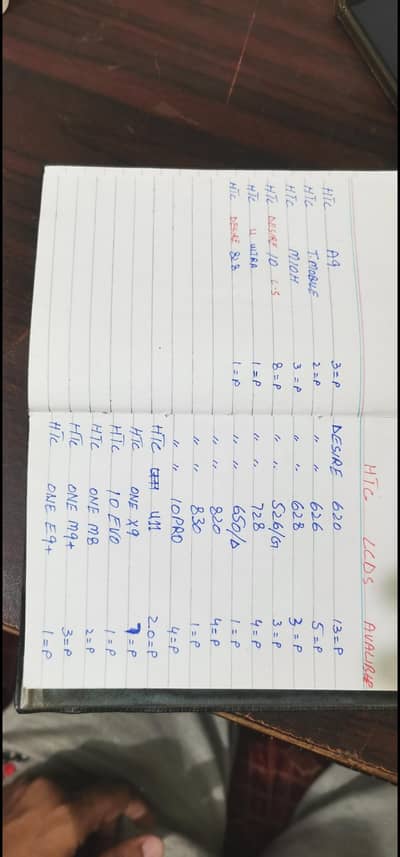 HTC LCDS AVALIBLE
HTC A9 3=P
HTC T.MOBILE 2=P
HTC M10H 3=P
HTC DESIRE 10 L-S 8=P
HTC U ULTRA 1=P
HTC DESIRE 828 1=P
DESIRE 630 13=P
" " 626 5=P
" " 628 3=P
" " 526/G 3=P
" " 728 4=P
" " 650/D 1=P
" " 820 4=P
" " 830 1=P
" " 10PRO 4=P
HTC U11 20=P
HTC ONE X9 7=P
HTC 10 EVO 1=P
HTC ONE M8 2=P
HTC ONE M9+ 3=P
HTC ONE E9+ 1=P